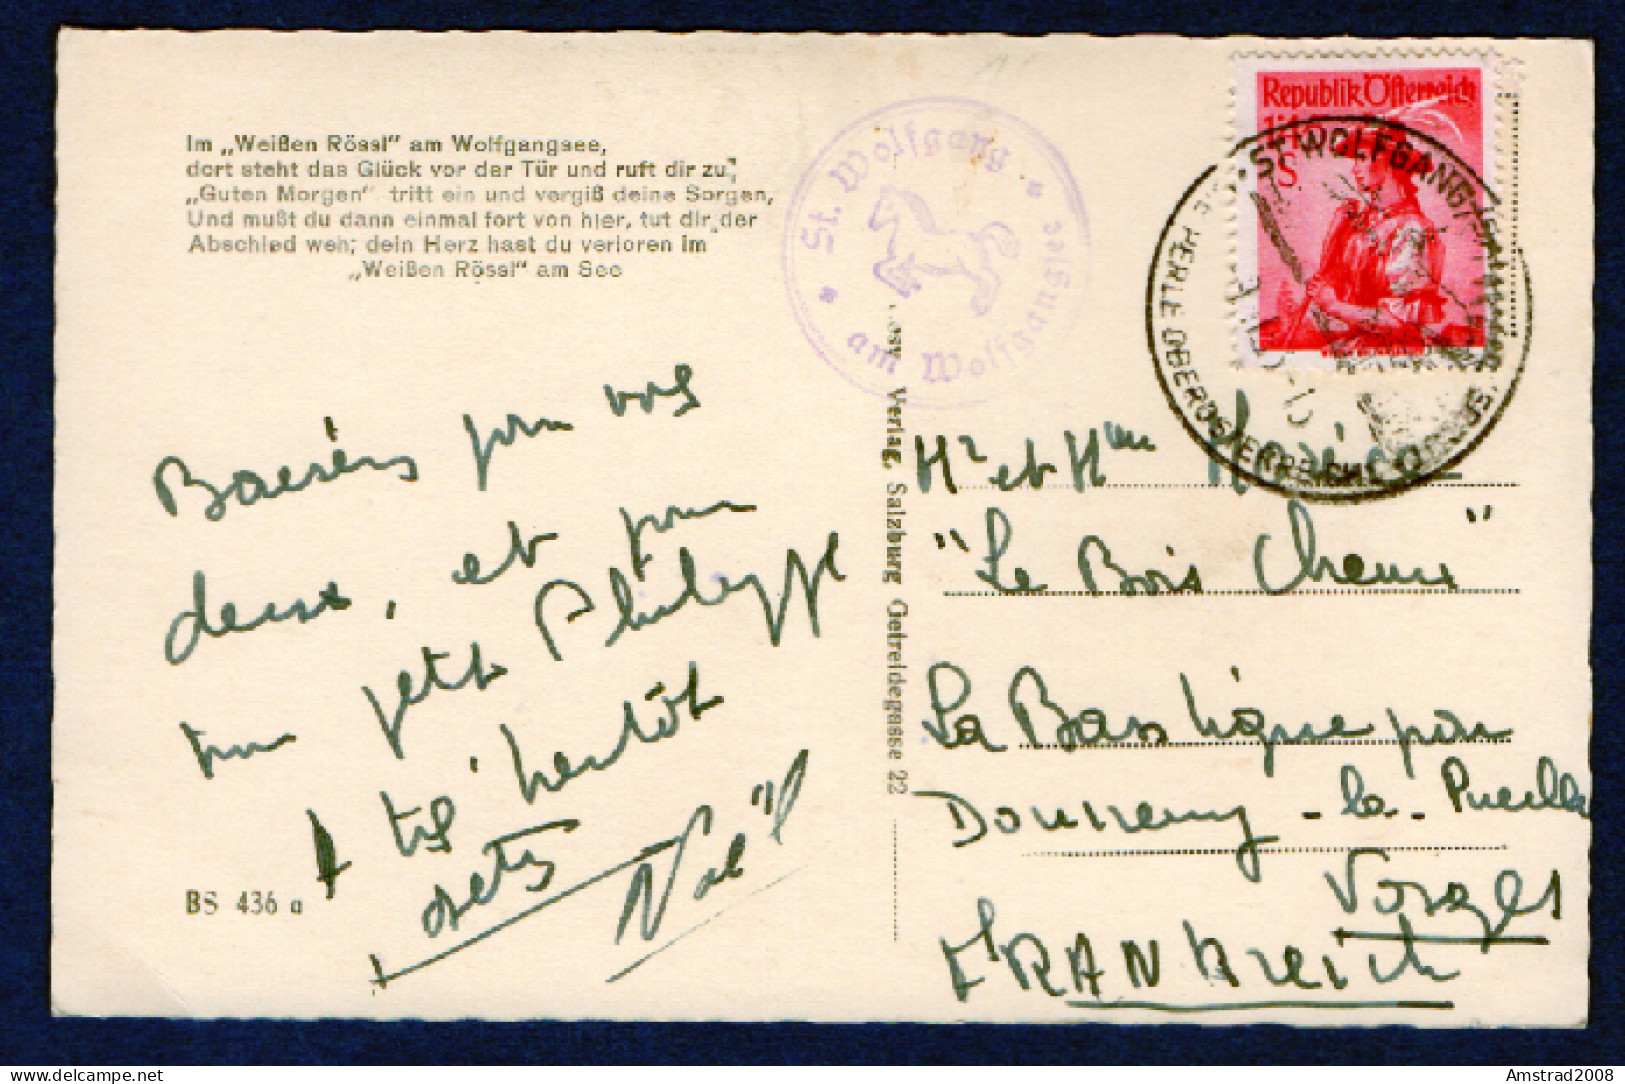 Im „Weißen Rössl" am Wolfgangsee,
dort steht das Glück vor der Tür und ruft dir zu,
„Guten Morgen" tritt ein und vergiß deine Sorgen,
Und mußt du dann einmal fort von hier, tut dir der
Abschied weh; dein Herz hast du verloren im
„Weißen Rössl" am See
St. Wolfgang
am Wolfgangsee
Republik Österreich
S
ST. WOLFGANG
OBERÖSTERREICH
pour vos
deux, et pour
petit Philippe
bientôt
Noël
BS 436 a
Verlag, Salzburg Getreidegasse 22
Mr et Mme
"Le Bois Chenu"
La Basilique par
Domremy-la-Pucelle
Vosges
FRANKreich
Amstrad2008